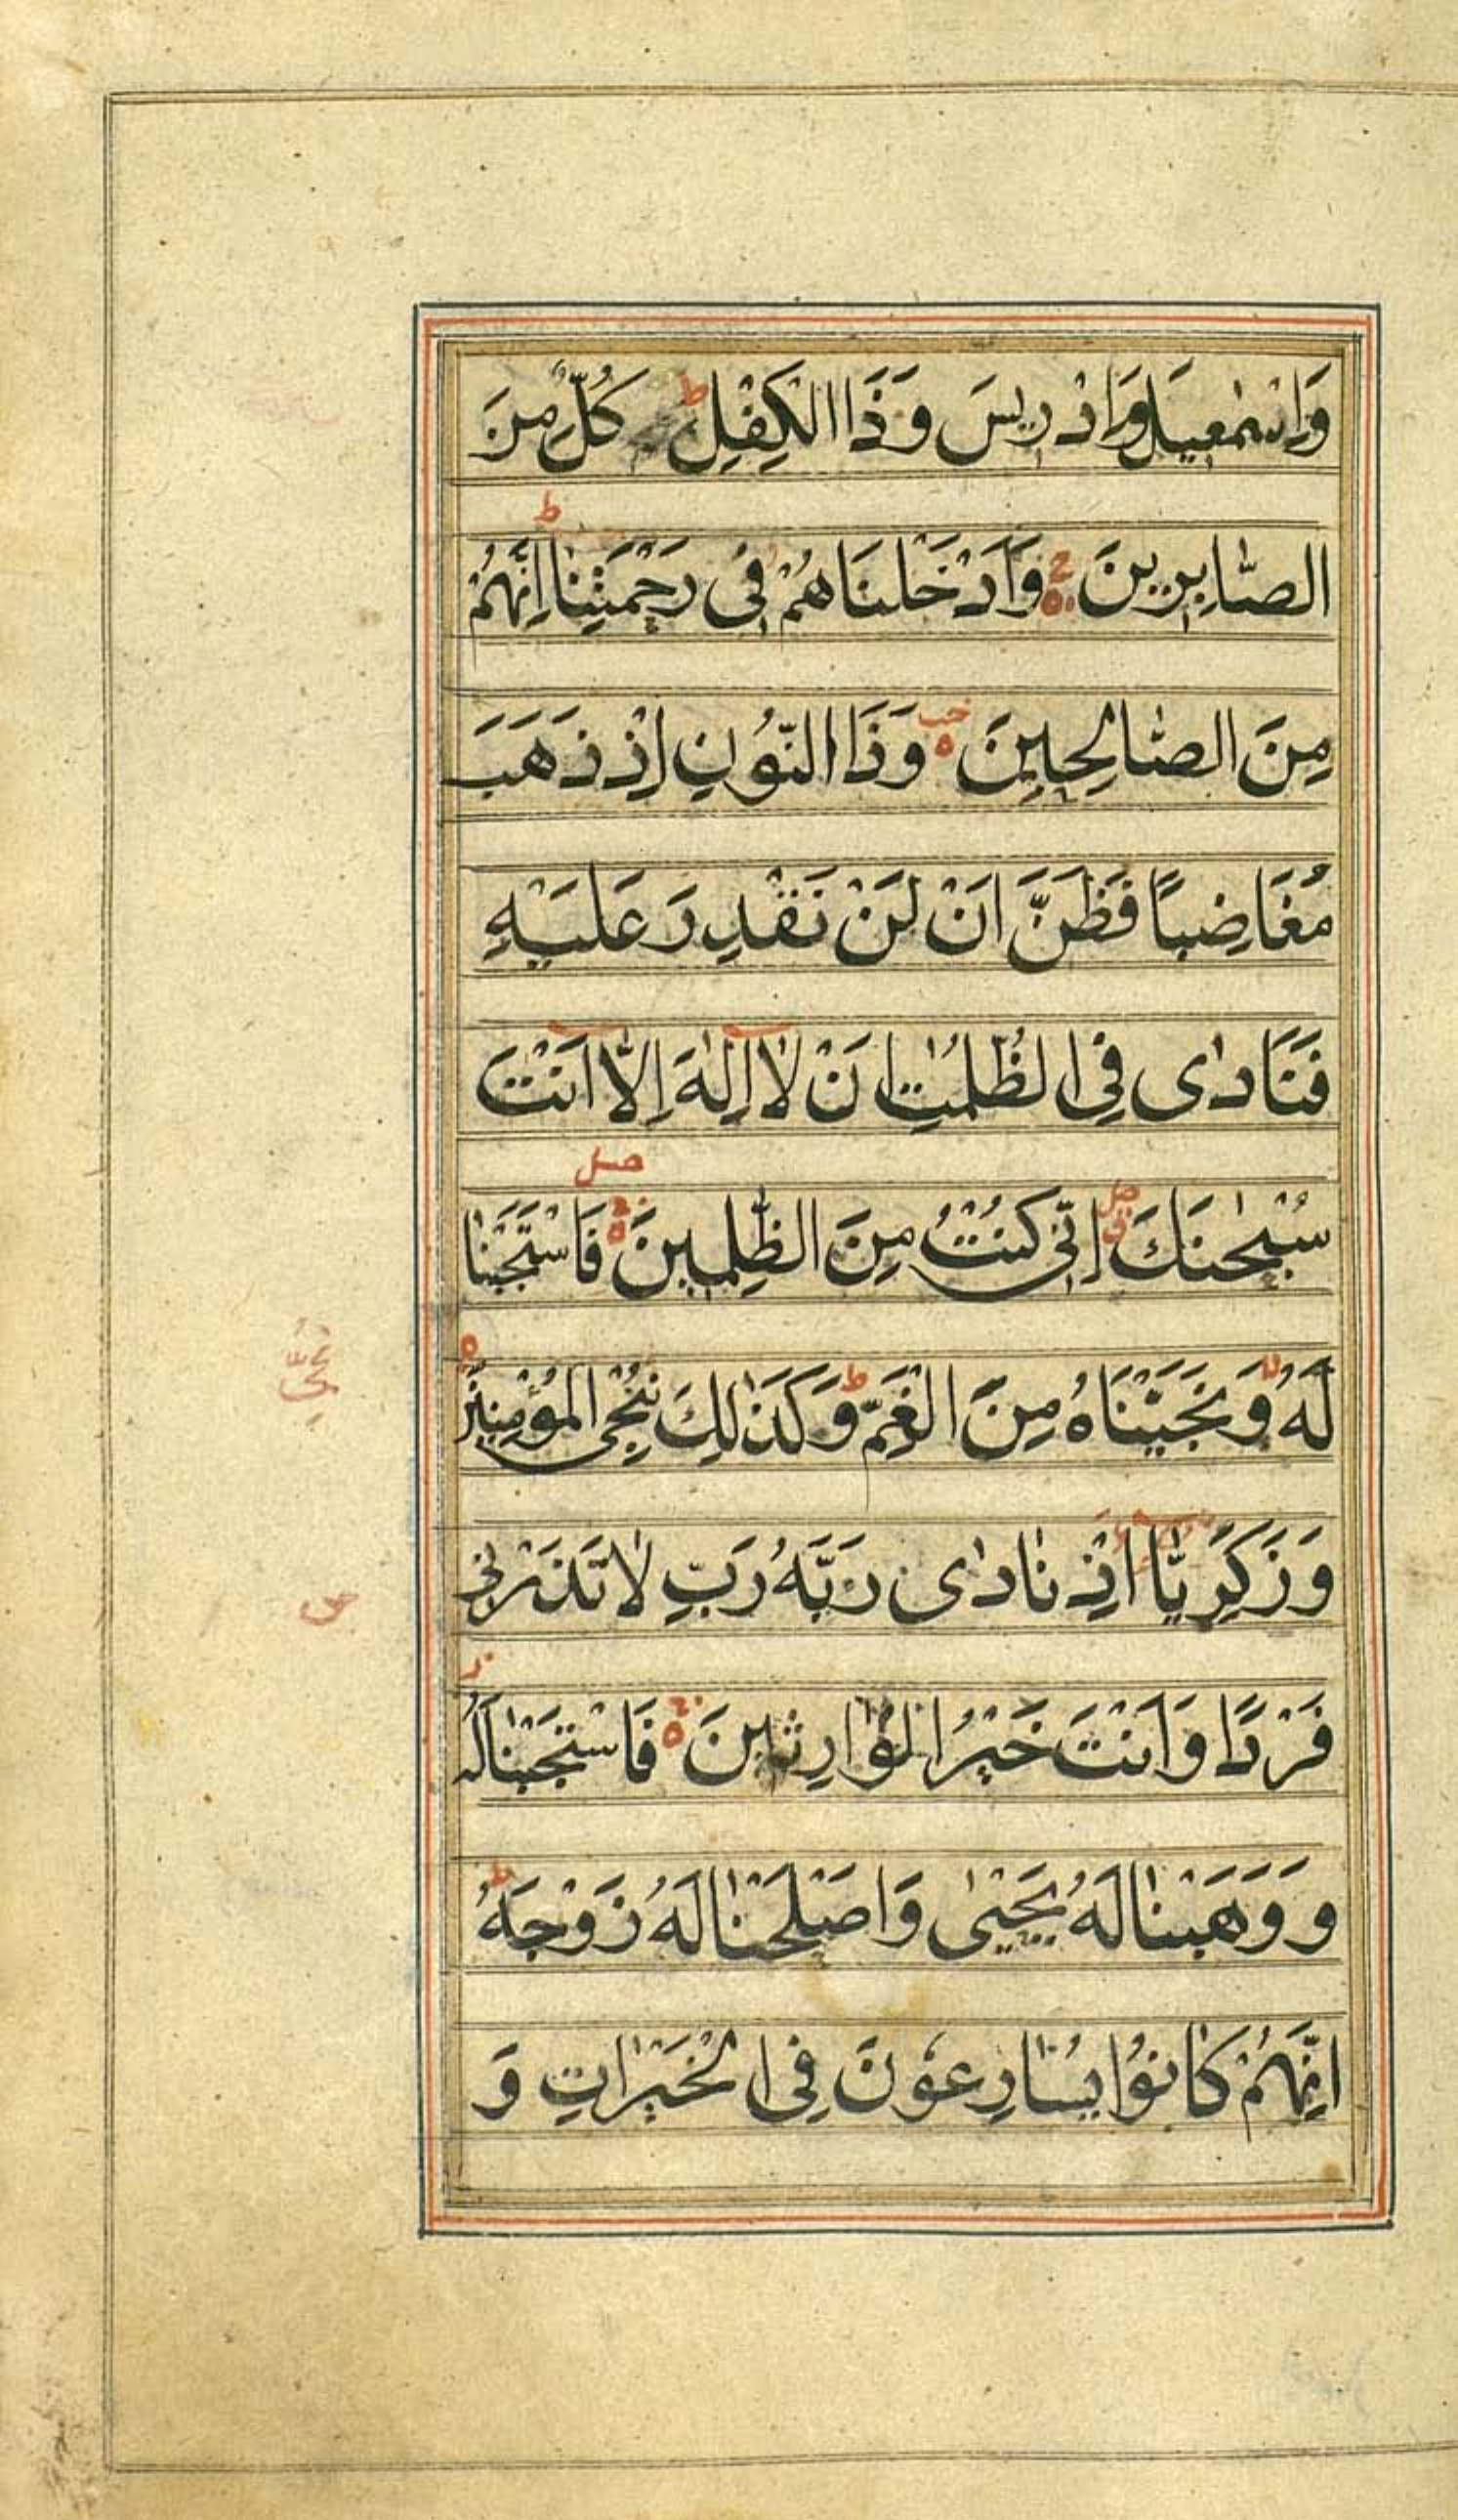 وَاِسْمٰعِيلَ وَاِدْرِيسَ وَذَا الْكِفْلِ ط كُلٌّ مِنَ
الصّٰابِرِينَ وَاَدْخَلْنَاهُمْ فِى رَحْمَتِنٰا ط اِنَّهُمْ
مِنَ الصّٰالِحِينَ وَذَا النُّونِ اِذْ ذَهَبَ
مُغَاضِباً فَظَنَّ اَنْ لَنْ نَقْدِرَ عَلَيْهِ
فَنَادٰى فِى الظُّلُمٰتِ اَنْ لٰا اِلٰهَ اِلّٰا اَنْتَ
سُبْحٰنَكَ اِنِّى كُنْتُ مِنَ الظّٰلِمِينَ فَاسْتَجَبْنٰا
لَهُ وَنَجَّيْنَاهُ مِنَ الْغَمِّ ط وَكَذٰلِكَ نُنْجِى الْمُؤْمِنِينَ
وَزَكَرِيّٰا اِذْ نٰادٰى رَبَّهُ رَبِّ لٰا تَذَرْنِى
فَرْدًا وَاَنْتَ خَيْرُ الْوٰارِثِينَ فَاسْتَجَبْنٰا لَهُ
وَوَهَبْنٰا لَهُ يَحْيٰى وَاَصْلَحْنٰا لَهُ زَوْجَهُ ط
اِنَّهُمْ كٰانُوْا يُسٰارِعُوْنَ فِى الْخَيْرٰاتِ وَ